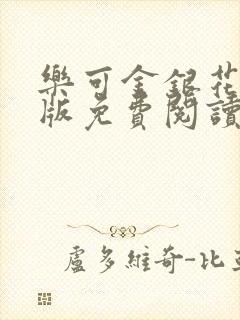 樂可金銀花
版免費閱讀
盧多維奇-比亞